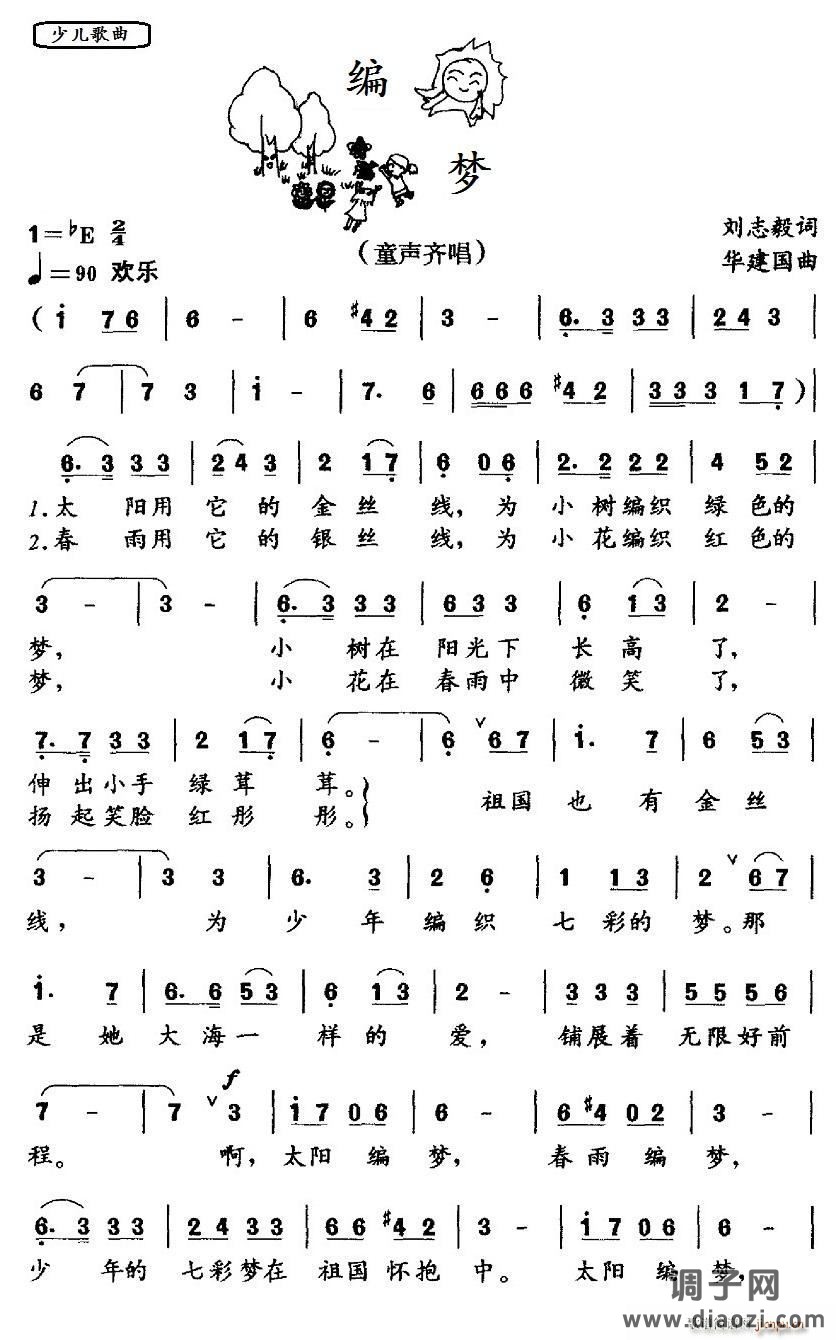 少儿歌曲
编
梦
(童声齐唱)
1=♭E 2/4
♩=90 欢乐
刘志毅词
华建国曲
( i 7 6 | 6 - | 6 #4 2 | 3 - | 6. 3 3 3 | 2 4 3 |
6 7 | 7 3 | i - | 7. 6 | 6 6 6 #4 2 | 3 3 3 1 7 ) |
6. 3 3 3 | 2 4 3 | 2 1 7 | 6 0 6 | 2. 2 2 2 | 4 5 2 |
1.太 阳用 它 的 金 丝 线, 为 小 树编织 绿 色的
2.春 雨用 它 的 银 丝 线, 为 小 花编织 红 色的
3 - | 3 - | 6. 3 3 3 | 6 3 3 | 6 1 3 | 2 - |
梦, 小 树在 阳光下 长 高 了,
梦, 小 花在 春雨中 微 笑 了,
7. 7 3 3 | 2 1 7 | 6 - | 6 ∨ 6 7 | i. 7 | 6 5 3 |
伸 出小手 绿 茸 茸。 祖国 也 有 金 丝
扬 起笑脸 红 彤 彤。
3 - | 3 3 | 6. 3 | 2 6 | 1 1 3 | 2 ∨ 6 7 |
线, 为 少 年 编 织 七 彩的 梦。那
i. 7 | 6. 6 5 3 | 6 1 3 | 2 - | 3 3 3 | 5 5 5 6 |
是 她 大 海一 样 的 爱, 铺展着 无限好前
7 - | 7 ∨ f 3 | i 7 0 6 | 6 - | 6 #4 0 2 | 3 - |
程。 啊, 太阳 编 梦, 春雨 编 梦,
6. 3 3 3 | 2 4 3 3 | 6 6 #4 2 | 3 - | i 7 0 6 | 6 - |
少 年的 七彩梦在 祖国 怀抱 中。 太阳 编 梦,
调子网
www.diaozi.com